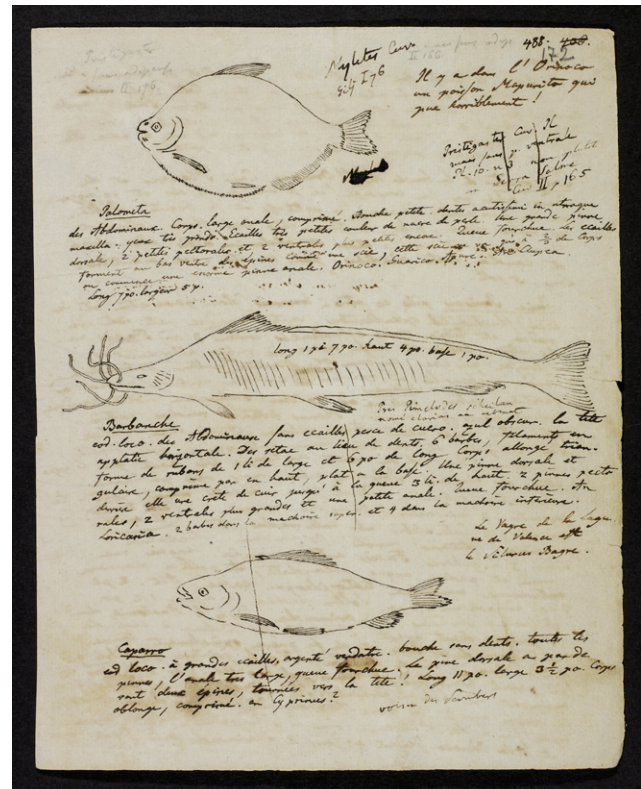 Myletes Cuv
Gilj I 76
488. 408.
172
Il y a dans l'Orinoco
un poisson Mapurito qui
pue horriblement!
Pristigaster Cuv. Pl
mais sans p. ventrale
Pl. 10. n 3 non
Serra Salme
Cuv II, 165
Palometa
des Abdominaux. Corps large ovale, comprimé. Bouche petite. dents acutissimi in utraque
maxilla. yeux très grands. Ecailles très petites couleur de nacre de perle. Une grande pinne
dorsale, 2 petites pectorales et 2 ventrales plus petites encore. Queue fourchue. les ecailles
forment au bas ventre des épines comme une scie, cette scie
ou commence une enorme pinne anale. Orinoco. Guarico. Apure.
Long 7 po. largeur 5 p.
long 1 pi. 7 po. haut 4 po. base 1 po.
Pris Pimelodes
Barbanche
eod. loco. des Abdominaux sans ecailles pesca de cuero. azul obscur. la tête
applatie horizontale. Des setae au lieu de dents, 6 barbes, filamens en
forme de rubans de 1 li de large et 6 po de long. Corps allongé, trian-
gulaire, comprimé par en haut, plat a la base. Une pinne dorsale et
derrière elle une crête de cuir jusqu'à la queue 3 li. de haut. 2 pinnes pecto
rales, 2 ventrales plus grandes et une petite anale. Queue fourchue. An
Loricaria. 2 barbes dans la machoire super. et 4 dans la machoire inferieure.
Le Vagre de la Lagu
ne de Valence est
le Silurus Bagre.
Caparro
eod loco. à grandes ecailles, argenté verdatre. bouche sans dents. toutes les
pinnes, l'anale très large, queue fourchue. La pinne dorsale a par de
vant deux épines, tournées vers la tête! Long 11 po. large 3 ½ po. Corps
oblongue, comprimé. an Cyprinus?
voisin des Scombers